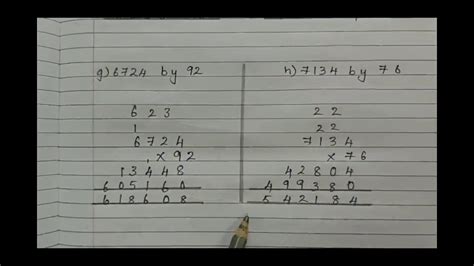 g) 6724 by 92
6 2 3
1
6724
x 92
13448
605160
618608
h) 7134 by 76
2 2
2 2
7134
x 76
42804
499380
542184